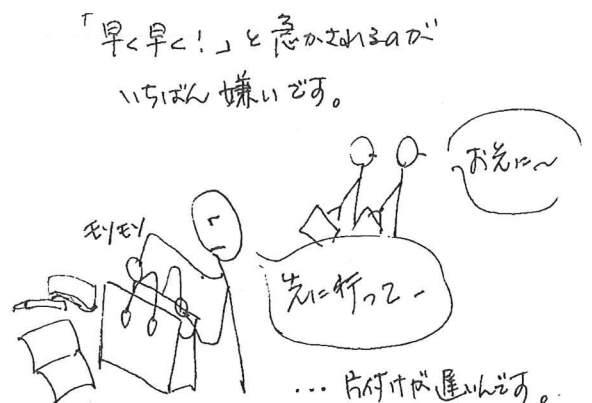 「早く早く！」と急かされるのが
いちばん嫌いです。
お先に〜
モソモソ
先に行って〜
・・・片付けが遅いんです。